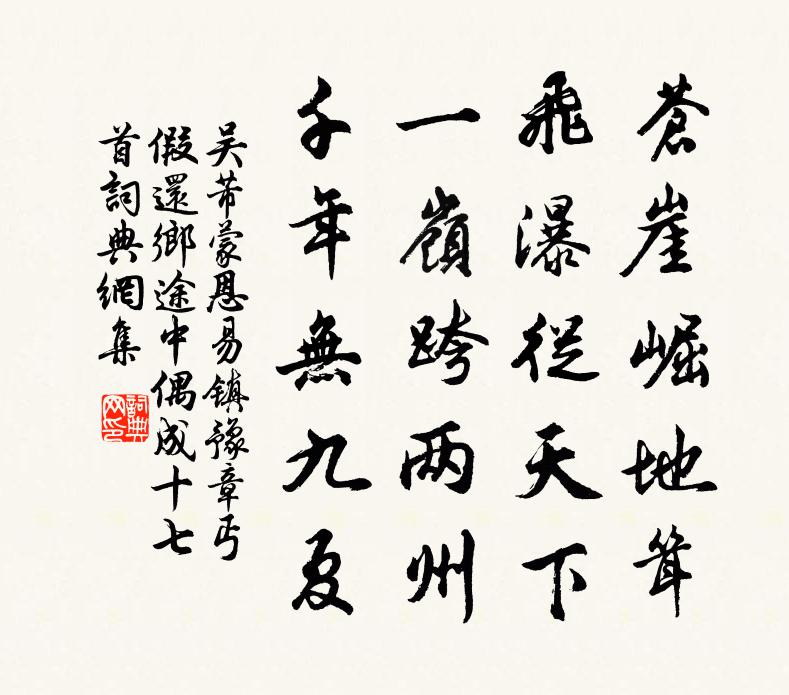 蒼崖崛地聳
飛瀑從天下
一嶺跨两州
千年無九夏
吴芾蒙恩易鎮豫章丐
假還鄉途中偶成十七
首詞典網集
詞典网印